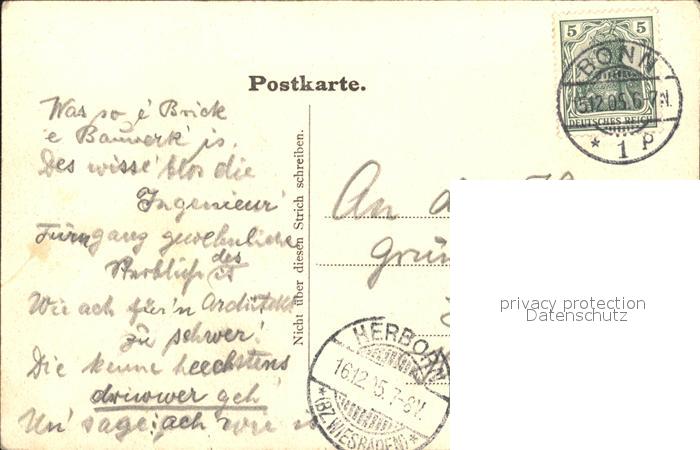 Postkarte.
5 5
DEUTSCHES REICH
BONN
5.12.05. 6-7 N.
* 1 P
Was so e' Brick
'e Bauwerk is.
Des wisse' blos die
Ingenieur'
Für'n ganz gewehnliche
Sterblich' is des
Wie ach für'n Architekt
zu schwer!
Die kenne heechstens
driwwer geh'
Un' sage: ach
Nicht über diesen Strich schreiben.
An
Grün
HERBORN
16.12.05. 7-8V.
*(BZ. WIESBADEN)*
privacy protection
Datenschutz